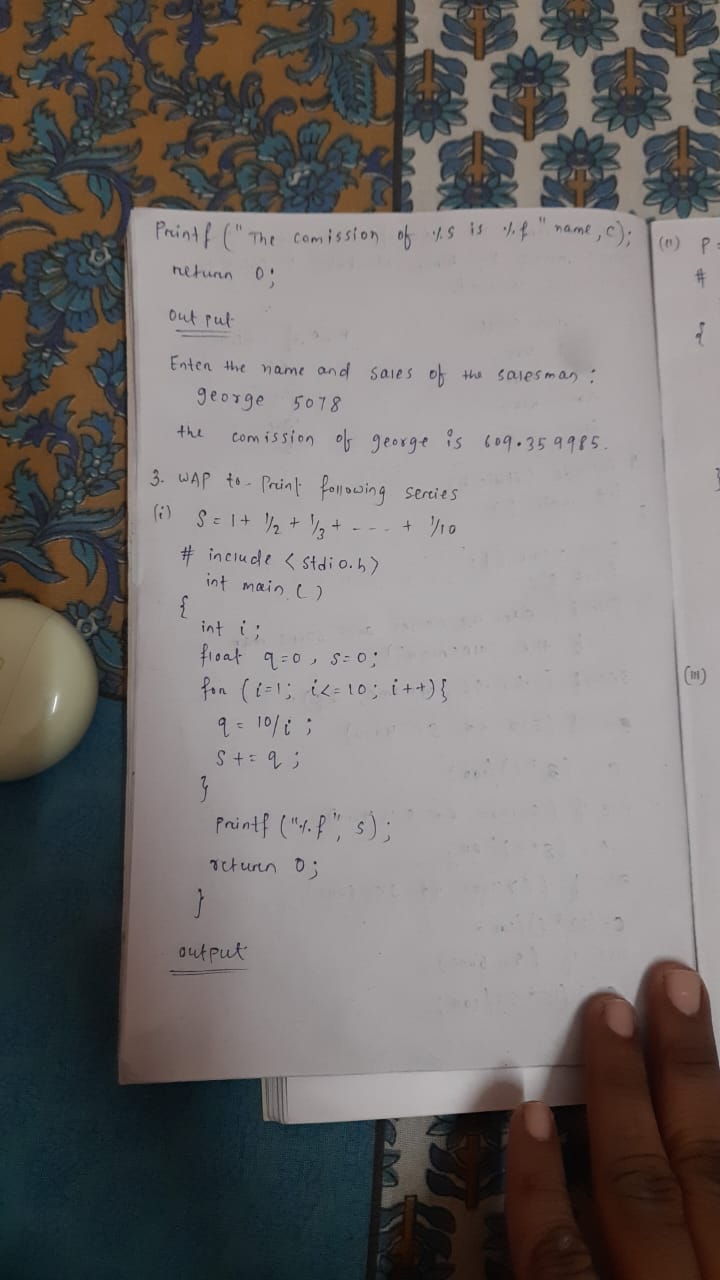 Printf ("The comission of %s is %f" name, c);
return 0;
output
Enter the name and sales of the salesman :
george 5078
the comission of george is 609.359985.
3. WAP to - Print following sercies
(i) S = 1 + 1/2 + 1/3 + - - - - + 1/10
# include <stdio.h>
int main ( )
{
int i ;
float q=0 , s=0;
for (i=1; i<=10; i++){
q = 10/i ;
s += q ;
}
printf ("%f", s);
return 0;
}
output
(11) P =
#
{
}
(111)